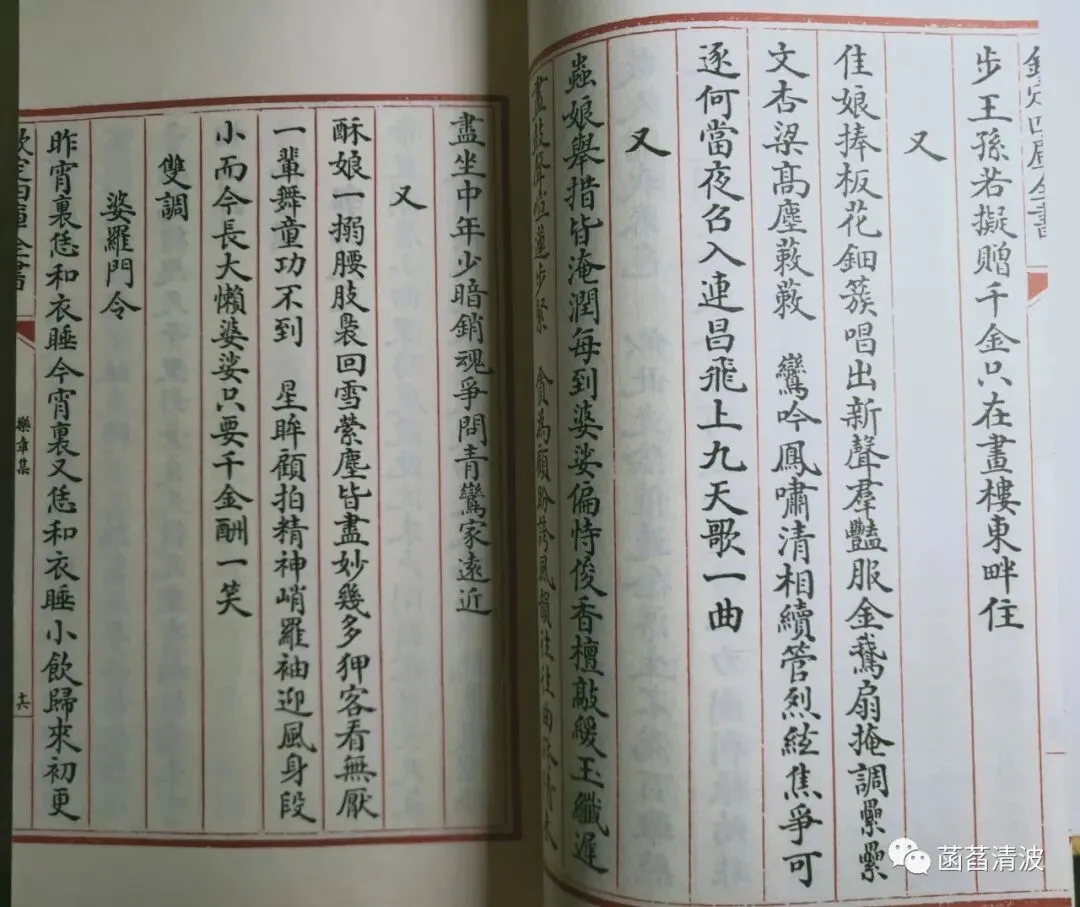 欽定四庫全書
步王孫若擬贈千金只在畫樓東畔住
又
佳娘捧板花鈿蔟唱出新聲羣豔服金鵞扇掩調纍纍
文杏梁高塵蔌蔌　鸞吟鳳嘯清相續管烈絃焦爭可
逐何當夜召入連昌飛上九天歌一曲
又
蟲娘舉措皆淹潤每到婆娑偏恃俊香檀敲緩玉纖遲
畫鼓聲喧蓮步緊　貪為顧盼誇風韻往往曲
盡坐中年少暗銷魂爭問青鸞家遠近
又
酥娘一搦腰肢裊回雪縈塵皆盡妙幾多狎客看無厭
一輩舞童功不到　星眸顧拍精神峭羅袖迎風身段
小而今長大懶婆娑只要千金酬一笑
雙調
婆羅門令
昨宵裏恁和衣睡今宵裏又恁和衣睡小飲歸來初更
欽定四庫全書
樂章集
十六
菡萏清波